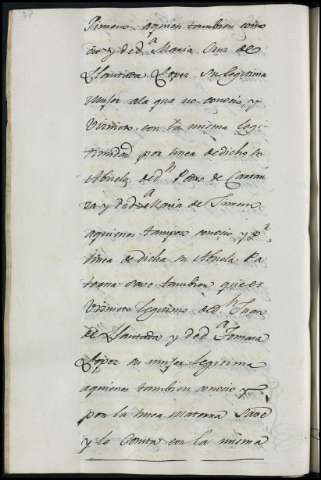 aquien tambien cono
y de Dª Maria Cruz de
Llantada Lopez su legitima
muger ala que no conocio, y
Visnieto con la misma legi
timidad por linea de dicho su
Abuelo de Dⁿ Pedro de
y de Dª Maria de
aquienes tampoco conocio y pʳ
linea de dicha su Abuela Pa
terna save tambien que es
Visnieto legitimo de Dⁿ Juan
de Llantada y de Dª Tomasa
Lopez su muger legitima
aquienes tambien conocio y
por la linea materna Save
y le Consta con la misma